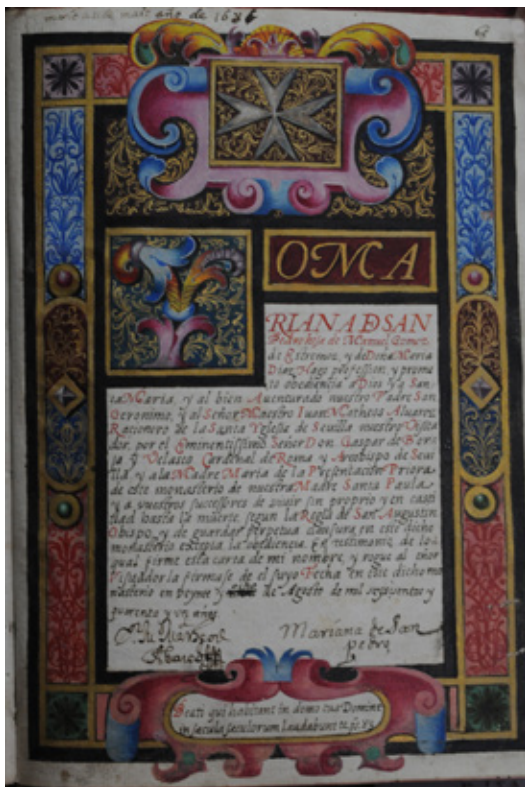 año de 1686
8
YOMA
RIANA D SAN
Pedro hija de Manuel Gomez
de Estremoz, y de Doña Maria
Diaz Hago profession, y prome
to obediencia a Dios y a San
ta Maria, y al bien Auenturado nuestro Padre San
Geronimo, y al Señor Maestro Iuan Matheos Aluarez
Racionero de la Santa Yglesia de Seuilla nuestro Visita
dor, por el Eminentissimo Señor Don Gaspar de Bor
ja y Velasco Cardenal de Roma y Arçobispo de Seui
lla y a la Madre Maria de la Presentacion Priora
de este monasterio de nuestra Madre Santa Paula
y a vuestros successores de viuir sin proprio y en casti
dad hasta la muerte, segun la Regla de San Augustin
Obispo, y de guardar perpetua clausura en este dicho
monasterio excepta la obediencia. En testimonio de lo
qual firme esta carta de mi nombre, y rogue al señor
Visitador la firmase de el suyo Fecha en este dicho mo
nasterio en veynte y de Agosto de mil seyscientos y
quarenta y un años.
Mariana de San
pedro
Beati qui habitant in domo tua Domine
in sæcula sæculorum laudabunt te. ps. 83